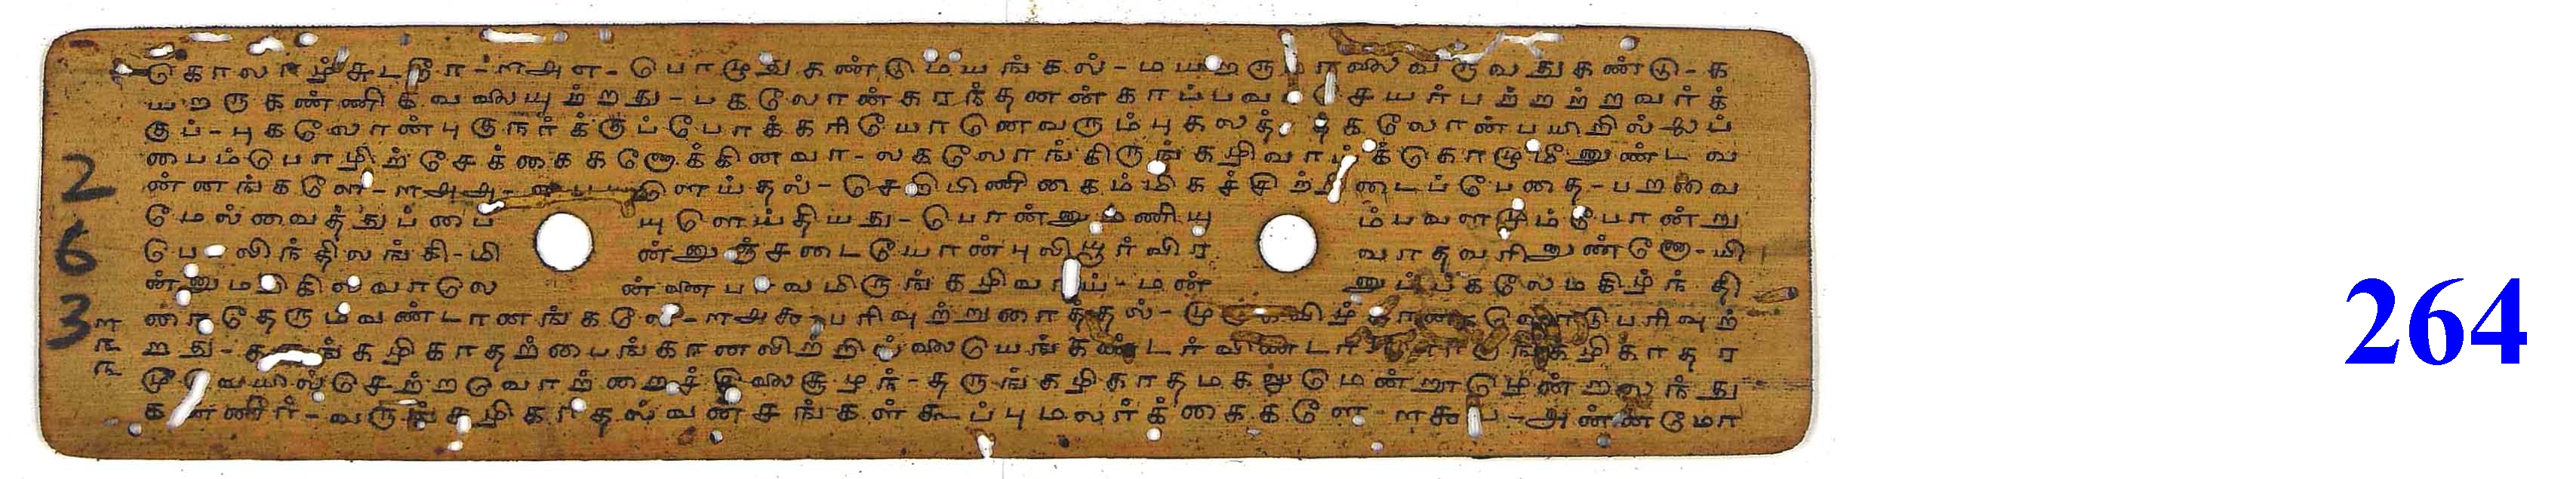 கொலாழ்சுடரோ-ளஅஎ-பொழுதுகண்டுமயங்கல்-மயறரு வருவதுகண்டு-க
யறருகண்ணிகவலையுற்றது-பகலோன்கரந்தனன்காப்பவ சேயர்பற்றற்றவர்க்
குப்-புகலோன்புகுநர்க்குப்போக்கரியோனெவரும்புகலத் தகலோன்பயிறில்லைப்
பைம்பொழிற்சேக்கைகணோக்கினவா-லகலோங்கிருங்கழிவாய்க்கொழுமீனுண்டவ
ன்னங்களே-ளஅஅ- ளெய்தல்-செறிபிணிகைம்மிகச்சிற்றிடைப்பேதை-பறவை
மேல்வைத்துப்பை யுளெய்தியது-பொன்னுமணியு ம்பவளமும்போன்று
பொலிந்திலங்கி-மி ன்னுஞ்சடையோன்புலியூர்விர வாதவரினுண்ணோ-யி
ன்னுமறிகிலவாலெ ன்னைபாவமிருங்கழிவாய்-மன் னும்பகலேமகிழ்ந் தி
ரைதேரும்வண்டானங்களே-ளஅகூ-பரிவுற்றுரைத்தல்-மு பரிவுற்
றது-கருங்கழிகாதற்பைங்கானலிற்றில்லையெங்கண்டர்விண்டார் கழிகாதர
மூவெயில்செற்றவொற்றைச்சிலைசூழந்-தருங்கழிகாதமகலுமென்றூழென்றலந்து
கண்ணீர்-வருங்கழிகாதல்வனசங்கள்கூப்புமலர்க்கைகளே-ளகூ -அன்னமோ
263
264